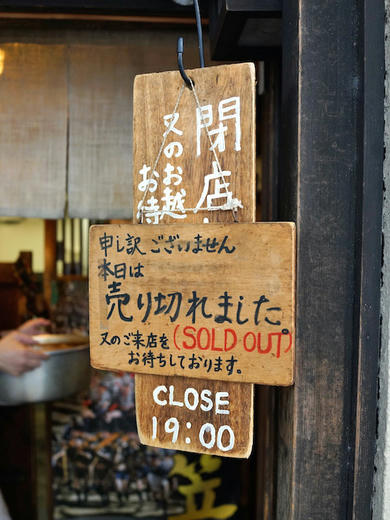 閉店
又のお越
お待
申し訳ございません
本日は
売り切れました。
(SOLD OUT)
又のご来店を
お待ちしております。
CLOSE
19:00
笠